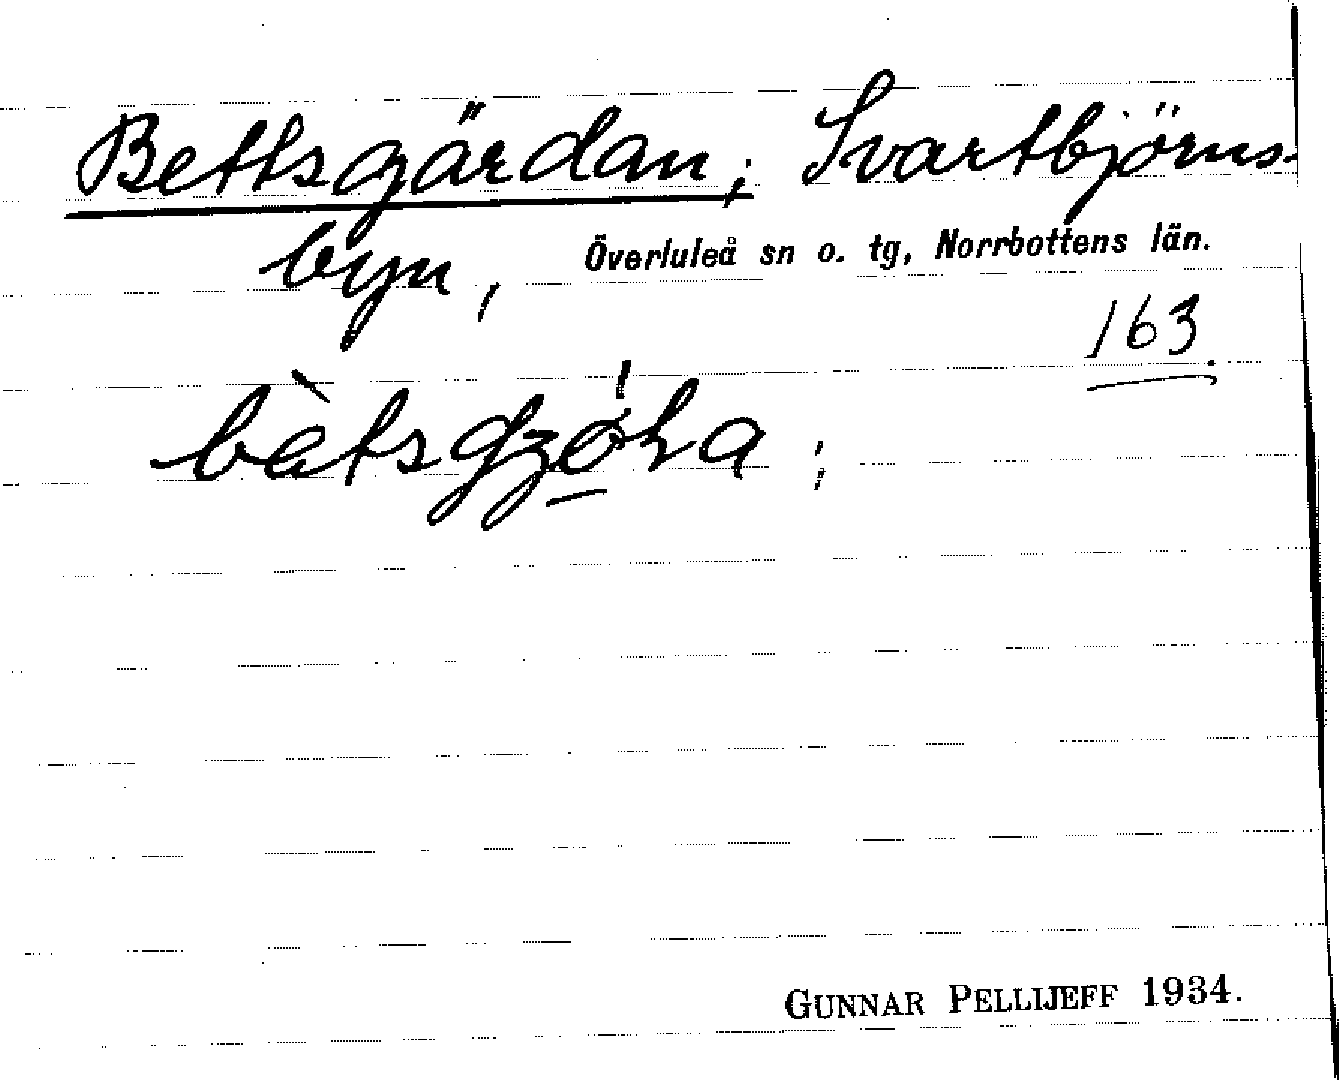 Bettsgärdan; Svartbjörns-
byn, Överluleå sn o. tg, Norrbottens län.
163.
GUNNAR PELLIJEFF 1934.